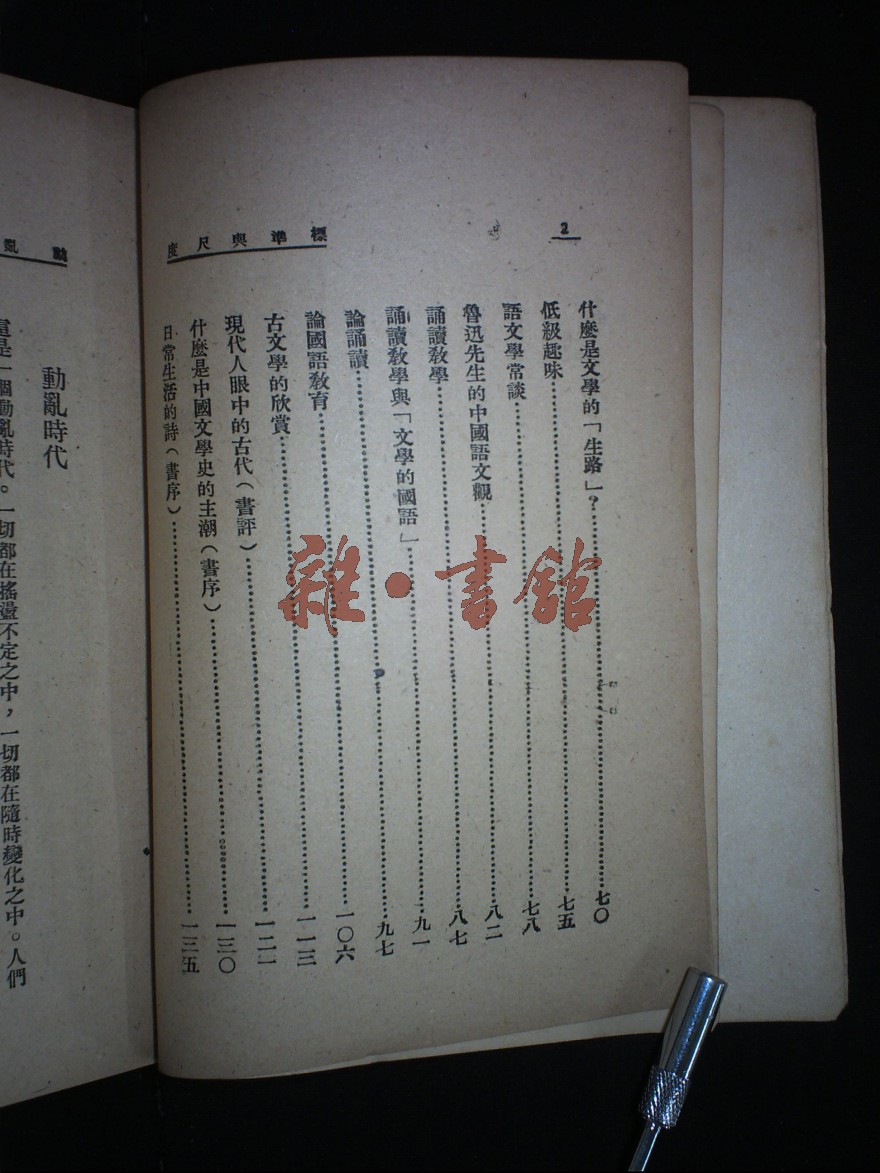 2
標準與尺度
什麼是文學的「生路」？……七〇
低級趣味……七五
語文學常談……七八
魯迅先生的中國語文觀……八二
誦讀教學……八七
誦讀教學與「文學的國語」……九一
論誦讀……九七
論國語教育……一〇六
古文學的欣賞……一一三
現代人眼中的古代（書評）……一二一
什麼是中國文學史的主潮（書序）……一三〇
日常生活的詩（書序）……一三五
動亂
動亂時代
這是一個動亂時代。一切都在搖盪不定之中，一切都在隨時變化之中。人們
雜·書館